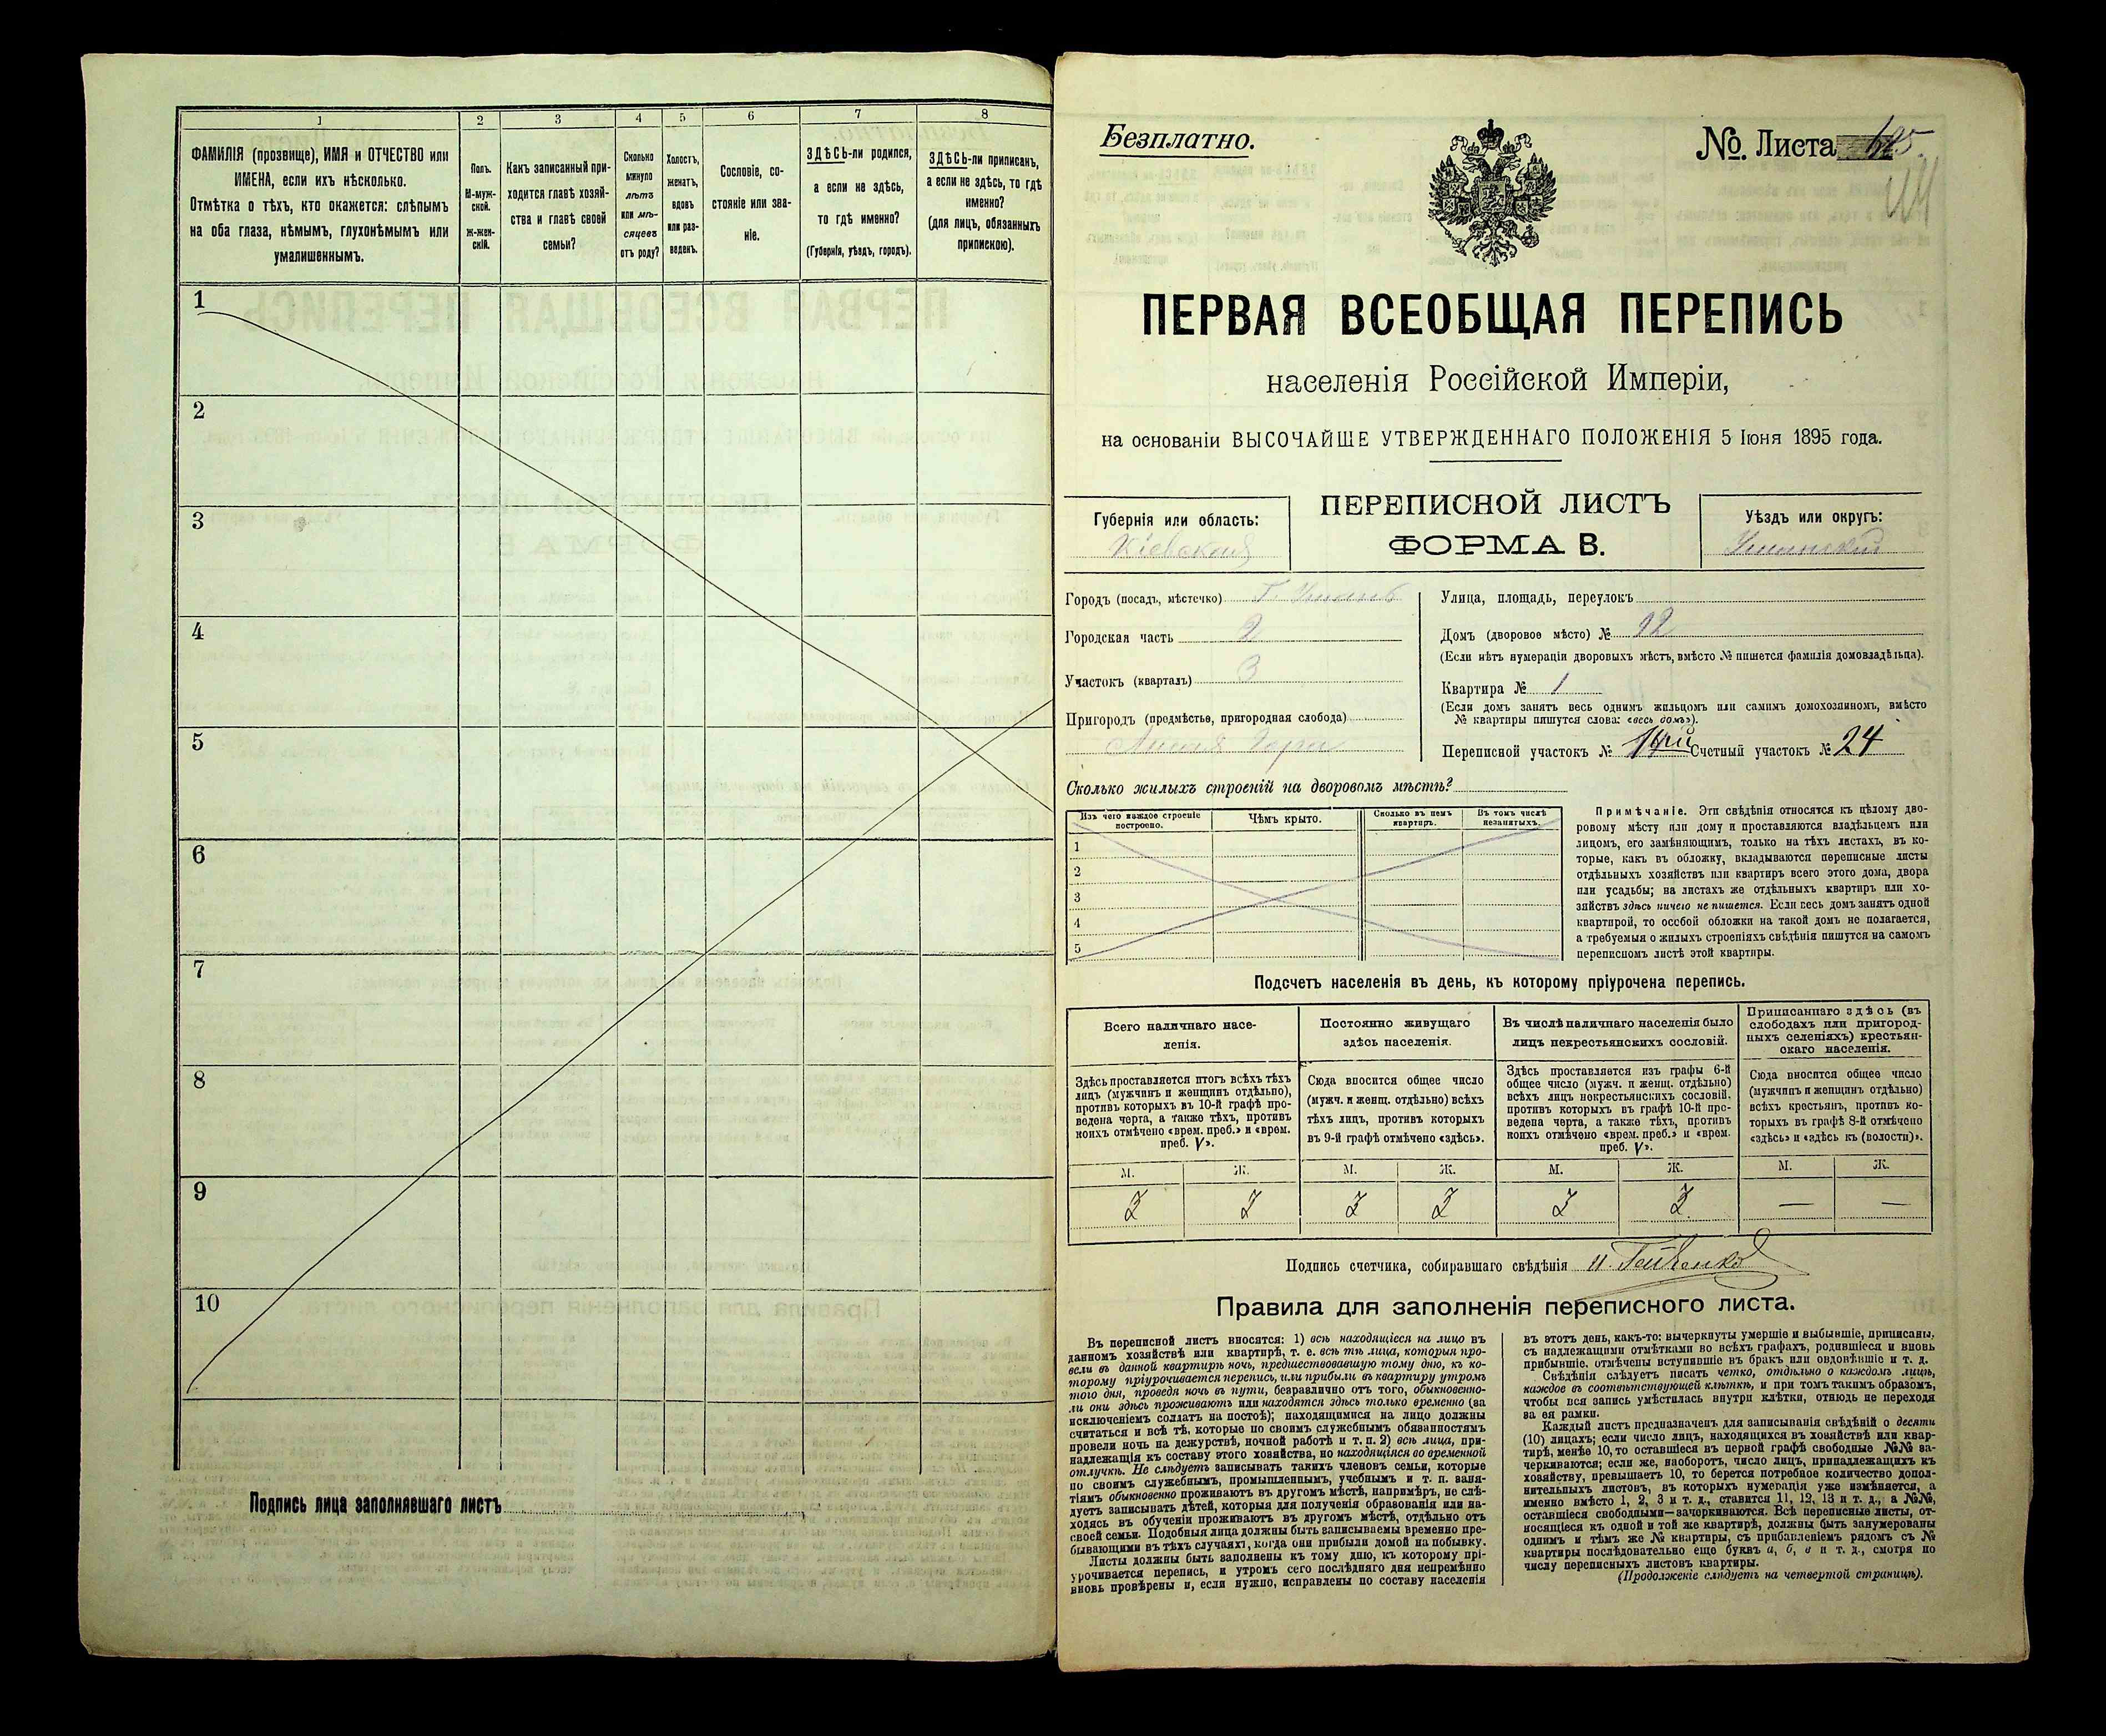 1
2
3
4
5
6
7
8
ФАМИЛІЯ (прозвище), ИМЯ и ОТЧЕСТВО или
ИМЕНА, если ихъ нѣсколько.
Отмѣтка о тѣхъ, кто окажется: слѣпымъ
на оба глаза, нѣмымъ, глухонѣмымъ или
умалишеннымъ.
Полъ.
М-муж-
ской.
Ж-жен-
скій.
Какъ записанный при-
ходится главѣ хозяй-
ства и главѣ своей
семьи?
Сколько
минуло
лѣтъ
или мѣ-
сяцевъ
отъ роду?
Холостъ,
женатъ,
вдовъ
или раз-
веденъ.
Сословіе, со-
стояніе или зва-
ніе.
ЗДѢСЬ-ли родился,
а если не здѣсь,
то гдѣ именно?
(Губернія, уѣздъ, городъ).
ЗДѢСЬ-ли приписанъ,
а если не здѣсь, то гдѣ
именно?
(для лицъ, обязанныхъ
припискою).
1
2
3
4
5
6
7
8
9
10
Подпись лица заполнявшаго листъ
Безплатно.
№. Листа
ПЕРВАЯ ВСЕОБЩАЯ ПЕРЕПИСЬ
населенія Россійской Имперіи,
на основаніи ВЫСОЧАЙШЕ УТВЕРЖДЕННАГО ПОЛОЖЕНІЯ 5 Іюня 1895 года.
Губернія или область:
Кіевская
ПЕРЕПИСНОЙ ЛИСТЪ
ФОРМА В.
Уѣздъ или округъ:
Уманскій
Городъ (посадъ, мѣстечко) Г. Умань
Городская часть 2
Участокъ (кварталъ) 3
Пригородъ (предмѣстье, пригородная слобода)
Лысая Гора
Улица, площадь, переулокъ
Домъ (дворовое мѣсто) № 92
(Если нѣтъ нумераціи дворовыхъ мѣстъ, вмѣсто № пишется фамилія домовладѣльца).
Квартира № 1
(Если домъ занятъ весь однимъ жильцомъ или самимъ домохозяиномъ, вмѣсто
№ квартиры пишутся слова: «весь домъ»).
Переписной участокъ № 14й Счетный участокъ № 24
Сколько жилыхъ строеній на дворовомъ мѣстѣ?
Изъ чего каждое строеніе
построено.
Чѣмъ крыто.
Сколько въ немъ
квартиръ.
Въ томъ числѣ
незанятыхъ.
1
2
3
4
5
Примѣчаніе. Эти свѣдѣнія относятся къ цѣлому дво-
ровому мѣсту или дому и проставляются владѣльцемъ или
лицомъ, его замѣняющимъ, только на тѣхъ листахъ, въ ко-
торые, какъ въ обложку, вкладываются переписные листы
отдѣльныхъ хозяйствъ или квартиръ всего этого дома, двора
или усадьбы; на листахъ же отдѣльныхъ квартиръ или хо-
зяйствъ здѣсь ничего не пишется. Если весь домъ занятъ одной
квартирой, то особой обложки на такой домъ не полагается,
а требуемыя о жилыхъ строеніяхъ свѣдѣнія пишутся на самомъ
переписномъ листѣ этой квартиры.
Подсчетъ населенія въ день, къ которому пріурочена перепись.
Всего наличнаго насе-
ленія.
Постоянно живущаго
здѣсь населенія.
Въ числѣ наличнаго населенія было
лицъ некрестьянскихъ сословій.
Приписаннаго здѣсь (въ
слободахъ или пригород-
ныхъ селеніяхъ) крестьян-
скаго населенія.
Здѣсь проставляется итогъ всѣхъ тѣхъ
лицъ (мужчинъ и женщинъ отдѣльно),
противъ которыхъ въ 10-й графѣ про-
ведена черта, а также тѣхъ, противъ
коихъ отмѣчено «врем. преб.» и «врем.
преб. V».
Сюда вносится общее число
(мужч. и женщ. отдѣльно) всѣхъ
тѣхъ лицъ, противъ которыхъ
въ 9-й графѣ отмѣчено «здѣсь».
Здѣсь проставляется изъ графы 6-й
общее число (мужч. и женщ. отдѣльно)
всѣхъ лицъ некрестьянскихъ сословій,
противъ которыхъ въ графѣ 10-й про-
ведена черта, а также тѣхъ, противъ
коихъ отмѣчено «врем. преб.» и «врем.
преб. V».
Сюда вносится общее число
(мужчинъ и женщинъ отдѣльно)
всѣхъ крестьянъ, противъ ко-
торыхъ въ графѣ 8-й отмѣчено
«здѣсь» и «здѣсь къ (волости)».
М. Ж. М. Ж. М. Ж. М. Ж.
3 3 3 3 3 3 — —
Подпись счетчика, собиравшаго свѣдѣнія
Правила для заполненія переписного листа.
Въ переписной листъ вносятся: 1) всѣ находящіеся на лицо въ
данномъ хозяйствѣ или квартирѣ, т. е. всѣ тѣ лица, которыя про-
вели въ данной квартирѣ ночь, предшествовавшую тому дню, къ ко-
торому пріурочивается перепись, или прибыли въ квартиру утромъ
того дня, проведя ночь въ пути, безразлично отъ того, обыкновенно-
ли они здѣсь проживаютъ или находятся здѣсь только временно (за
исключеніемъ солдатъ на постоѣ); находящимися на лицо должны
считаться и всѣ тѣ, которые по своимъ служебнымъ обязанностямъ
провели ночь на дежурствѣ, ночной работѣ и т. п. 2) всѣ лица, при-
надлежащія къ составу этого хозяйства, но находящіяся во временной
отлучкѣ. Не слѣдуетъ записывать такихъ членовъ семьи, которые
по своимъ служебнымъ, промышленнымъ, учебнымъ и т. п. заня-
тіямъ обыкновенно проживаютъ въ другомъ мѣстѣ, напримѣръ, не слѣ-
дуетъ записывать дѣтей, которыя для полученія образованія или на-
ходясь въ обученіи проживаютъ въ другомъ мѣстѣ, отдѣльно отъ
своей семьи. Подобныя лица должны быть записываемы временно пре-
бывающими въ тѣхъ случаяхъ, когда они прибыли домой на побывку.
Листы должны быть заполнены къ тому дню, къ которому прі-
урочивается перепись, и утромъ сего послѣдняго дня непремѣнно
вновь провѣрены и, если нужно, исправлены по составу населенія
въ этотъ день, какъ-то: вычеркнуты умершіе и выбывшіе, приписаны,
съ надлежащими отмѣтками во всѣхъ графахъ, родившіеся и вновь
прибывшіе, отмѣчены вступившіе въ бракъ или овдовѣвшіе и т. д.
Свѣдѣнія слѣдуетъ писать четко, отдѣльно о каждомъ лицѣ,
каждое въ соотвѣтствующей клѣткѣ, и при томъ такимъ образомъ,
чтобы вся запись умѣстилась внутри клѣтки, отнюдь не переходя
за ея рамки.
Каждый листъ предназначенъ для записыванія свѣдѣній о десяти
(10) лицахъ; если число лицъ, находящихся въ хозяйствѣ или квар-
тирѣ, менѣе 10, то оставшіеся въ первой графѣ свободные №№ за-
черкиваются; если же, наоборотъ, число лицъ, принадлежащихъ къ
хозяйству, превышаетъ 10, то берется потребное количество допол-
нительныхъ листовъ, въ которыхъ нумерація уже измѣняется, а
именно вмѣсто 1, 2, 3 и т. д., ставится 11, 12, 13 и т. д., а №№,
оставшіеся свободными—зачеркиваются. Всѣ переписные листы, от-
носящіеся къ одной и той же квартирѣ, должны быть занумерованы
однимъ и тѣмъ же № квартиры, съ прибавленіемъ рядомъ съ №
квартиры послѣдовательно еще буквъ а, б, в и т. д., смотря по
числу переписныхъ листовъ квартиры.
(Продолженіе слѣдуетъ на четвертой страницѣ).